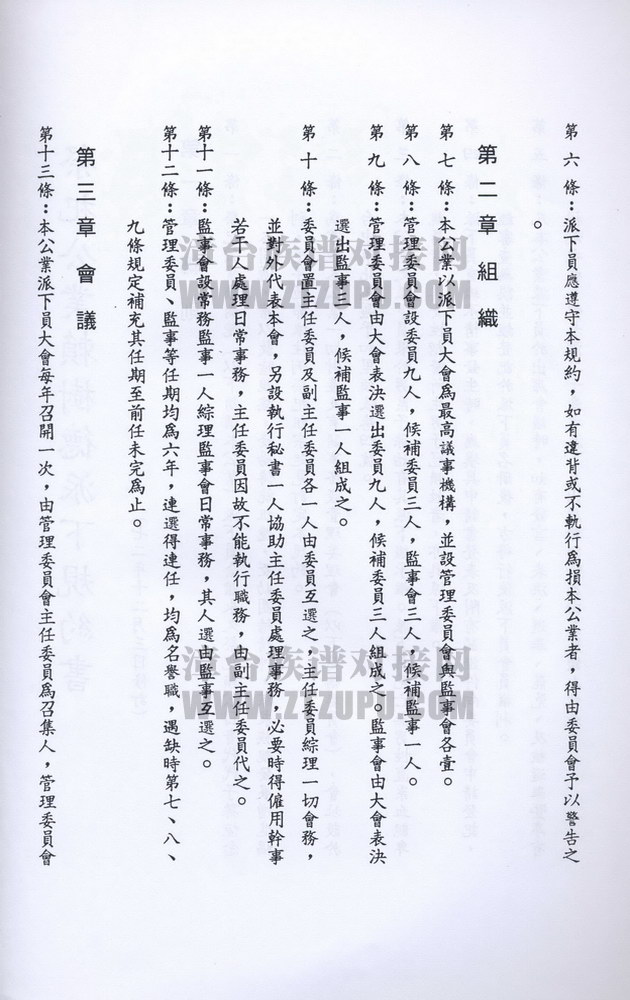 第六條：派下員應遵守本規約，如有違背或不執行為損本公業者，得由委員會予以警告之
。
第二章組織
第七條：本公業以派下員大會為最高議事機構，並設管理委員會與監事會各壹。
第八條：管理委員會設委員九人，候補委員三人，監事會三人，候補監事一人。
第九條：管理委員會由大會表決選出委員九人，候補委員三人組成之。監事會由大會表決
選出監事三人，候補監事一人組成之。
第十條：委員會置主任委員及副主任委員各一人由委員互選之，主任委員綜理一切會務，
並對外代表本會，另設執行秘書一人協助主任委員處理事務，必要時得僱用幹事
若干人處理日常事務，主任委員因故不能執行職務，由副主任委員代之。
第十一條：監事會設常務監事一人綜理監事會日常事務，其人選由監事互選之。
第十二條：管理委員、監事等任期均為六年，連選得連任，均為名譽職，遇缺時第七、八、
九條規定補充其任期至前任未完為止。
第三章會議
第十三條：本公業派下員大會每年召開一次，由管理委員會主任委員為召集人，管理委員會
漳台族谱对接网
WWW.ZTZUPU.COM
漳台族谱对接网
WWW.ZTZUPU.COM